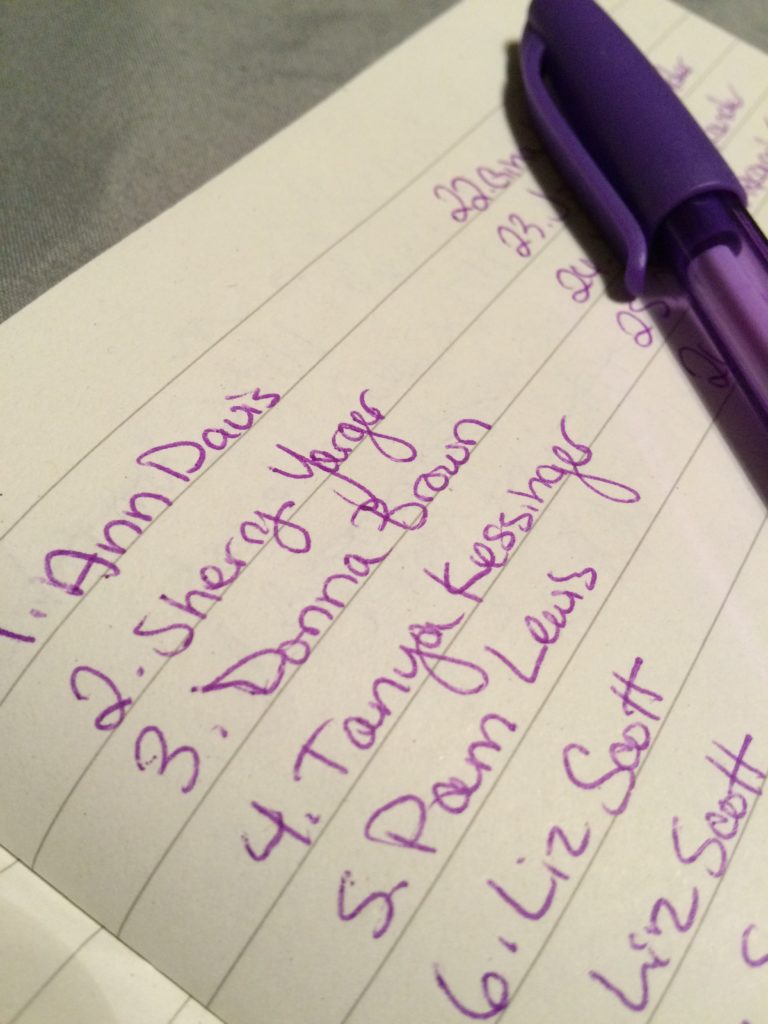 1. Ann Davis
2. Sherry Yarger
3. Donna Brown
4. Tanya Kessinger
5. Pam Lewis
6. Liz Scott
Liz Scott
22.
23.
24
25